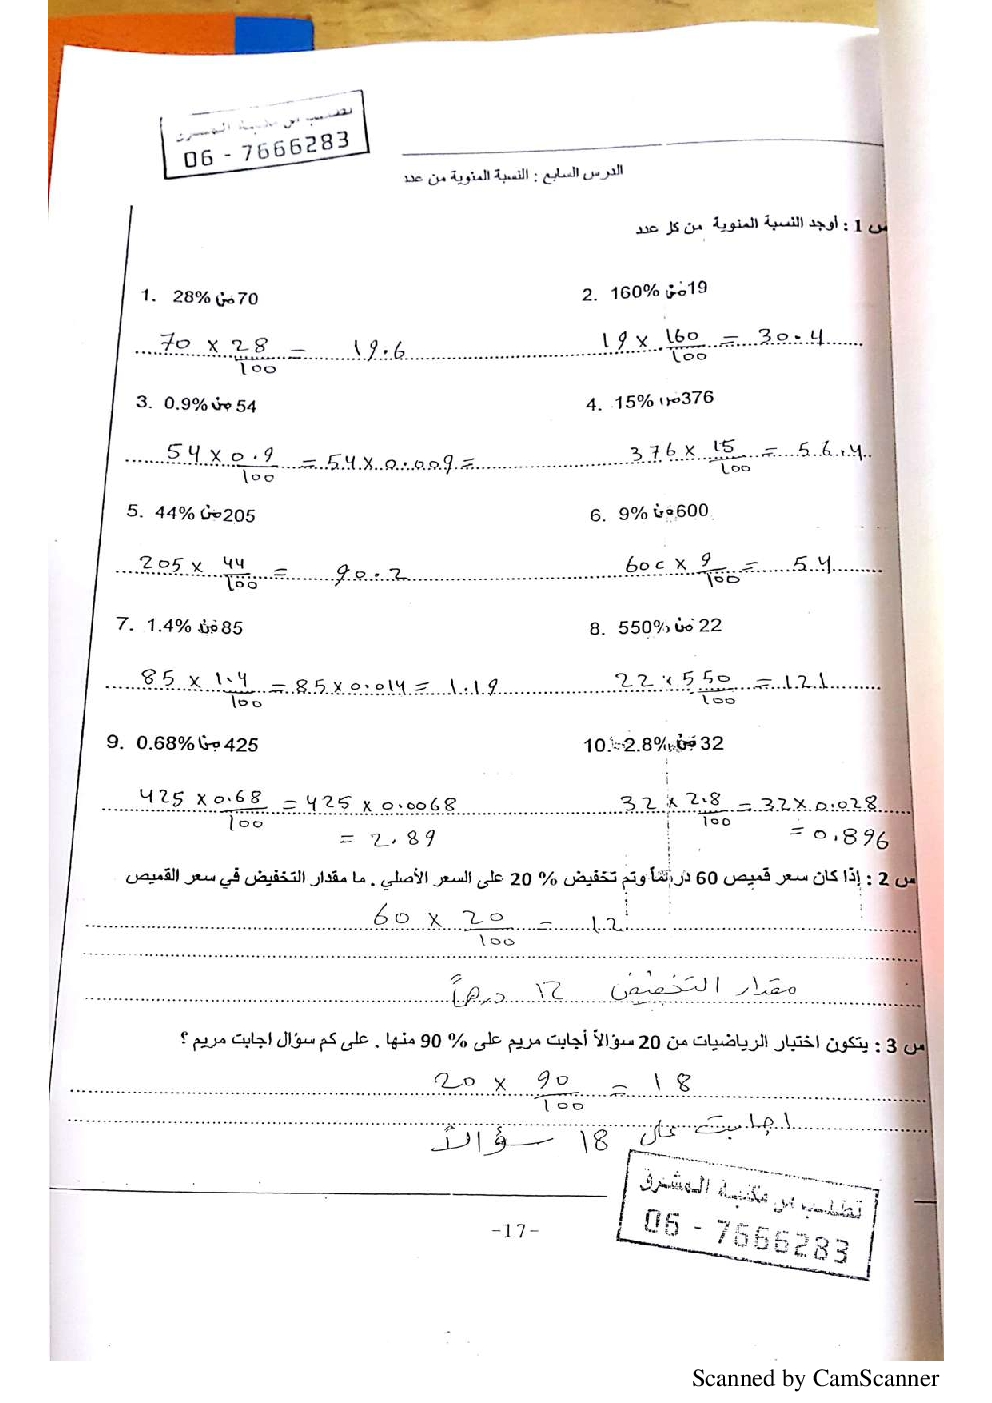 تطلب من مكتبة المشرق
06 - 7666283
الدرس السابع : النسبة المئوية من عدد
س 1 : أوجد النسبة المئوية من كل عدد
1. 28% من 70
2. 160% من 19
70 x 28/100 = 19.6
19 x 160/100 = 30.4
3. 0.9% من 54
4. 15% من 376
54 x 0.9/100 = 54 x 0.009 =
376 x 15/100 = 56.4
5. 44% من 205
6. 9% من 600
205 x 44/100 = 90.2
600 x 9/100 = 54
7. 1.4% من 85
8. 550% من 22
85 x 1.4/100 = 85 x 0.014 = 1.19
22 x 550/100 = 121
9. 0.68% من 425
10. 2.8% من 32
425 x 0.68/100 = 425 x 0.0068
= 2.89
32 x 2.8/100 = 32 x 0.028
= 0.896
س 2 : إذا كان سعر قميص 60 درهماً وتم تخفيض 20 % على السعر الأصلي . ما مقدار التخفيض في سعر القميص
60 x 20/100 = 12
مقدار التخفيض ١٢ درهماً
س 3 : يتكون اختبار الرياضيات من 20 سؤالاً أجابت مريم على 90 % منها . على كم سؤال اجابت مريم ؟
20 x 90/100 = 18
اجابت على 18 سؤالاً
تطلب من مكتبة المشرق
06 - 7666283
-17-
Scanned by CamScanner